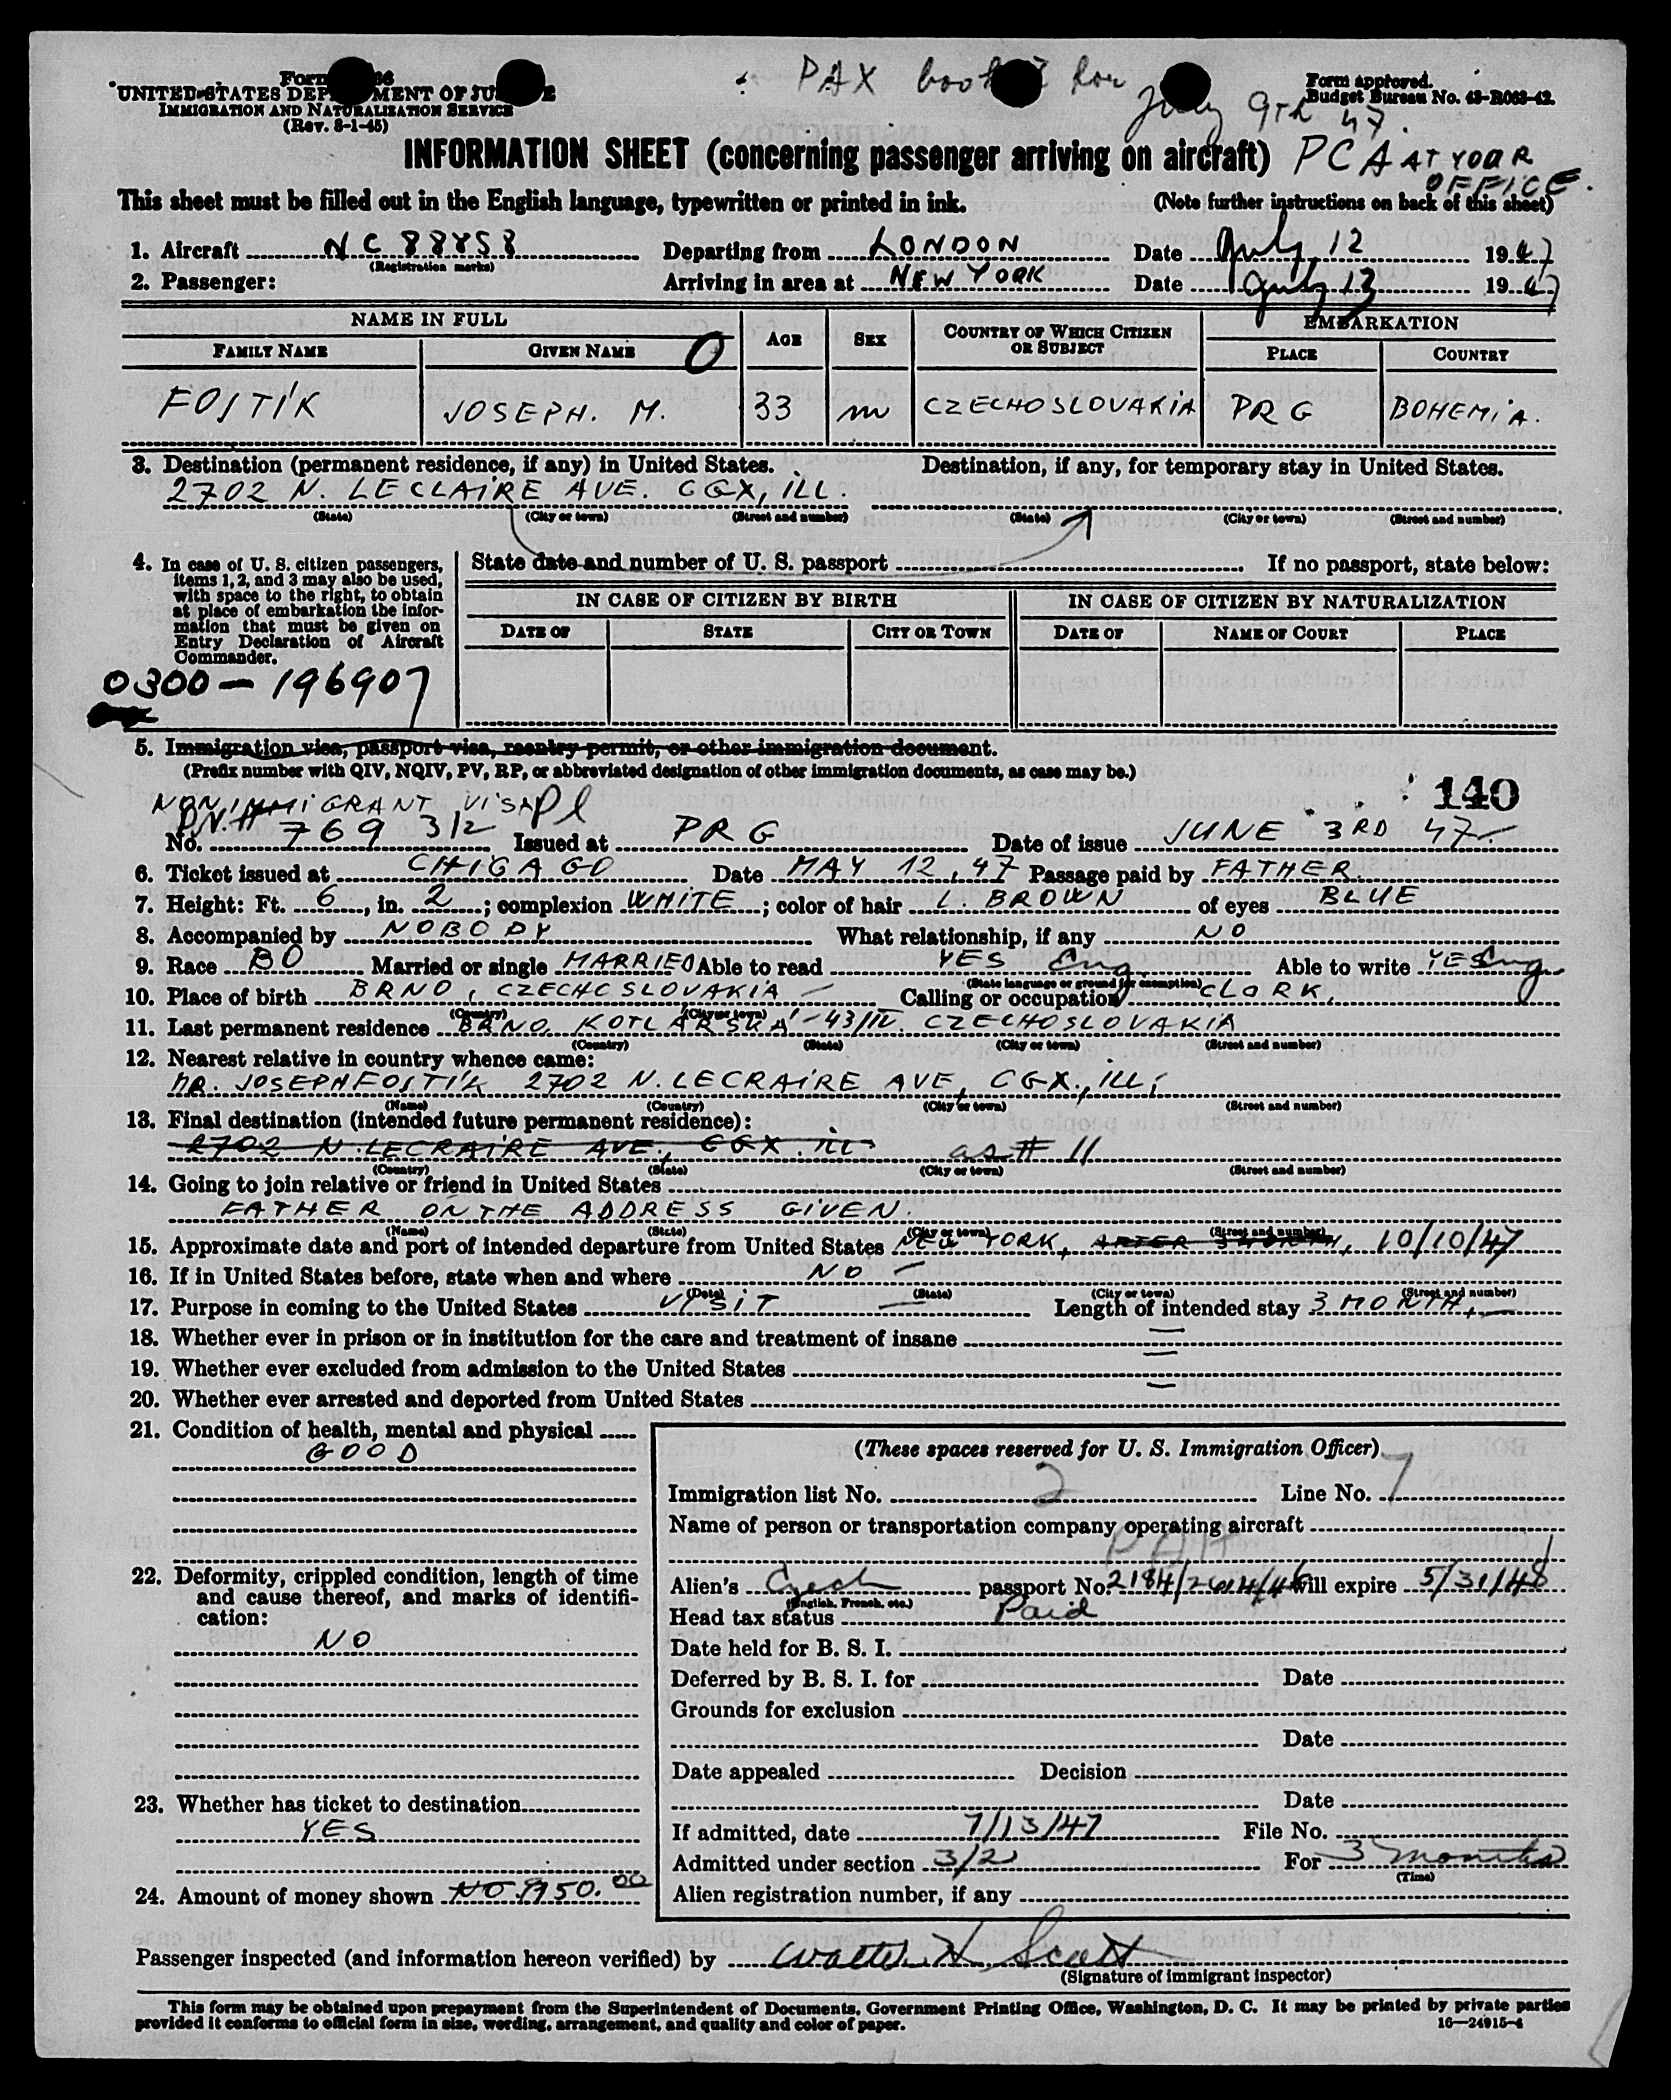 PAX booked for
July 9th 47.
PCA AT YOUR
OFFICE.
UNITED STATES DEPARTMENT OF JUSTICE
IMMIGRATION AND NATURALIZATION SERVICE
(Rev. 8-1-45)
Form approved.
Budget Bureau No. 43-R063-42.
INFORMATION SHEET (concerning passenger arriving on aircraft)
This sheet must be filled out in the English language, typewritten or printed in ink. (Note further instructions on back of this sheet)
1. Aircraft NC 88858 Departing from LONDON Date July 12 1947
(Registration marks)
2. Passenger: Arriving in area at NEW YORK Date July 13 1947
NAME IN FULL AGE SEX COUNTRY OF WHICH CITIZEN OR SUBJECT EMBARKATION
FAMILY NAME GIVEN NAME O PLACE COUNTRY
FOJTÍK JOSEPH. M. 33 m CZECHOSLOVAKIA PRG BOHEMIA.
3. Destination (permanent residence, if any) in United States. Destination, if any, for temporary stay in United States.
2702 N. LECLAIRE AVE. CGX, ILL.
(State) (City or town) (Street and number) (State) (City or town) (Street and number)
4. In case of U. S. citizen passengers,
items 1, 2, and 3 may also be used,
with space to the right, to obtain
at place of embarkation the infor-
mation that must be given on
Entry Declaration of Aircraft
Commander.
State date and number of U. S. passport If no passport, state below:
IN CASE OF CITIZEN BY BIRTH IN CASE OF CITIZEN BY NATURALIZATION
DATE OF STATE CITY OR TOWN DATE OF NAME OF COURT PLACE
0300-196907
5. Immigration visa, passport visa, reentry permit, or other immigration document.
(Prefix number with QIV, NQIV, PV, RP, or abbreviated designation of other immigration documents, as case may be.)
140
NONIMMIGRANT VISA
No. 769 3/2 Issued at PRG Date of issue JUNE 3RD 47
6. Ticket issued at CHIGAGO Date MAY 12, 47 Passage paid by FATHER
7. Height: Ft. 6, in. 2; complexion WHITE; color of hair L. BROWN of eyes BLUE
8. Accompanied by NOBODY What relationship, if any NO
9. Race BO Married or single MARRIED Able to read YES Eng Able to write YES Eng
(State language or ground for exemption)
10. Place of birth BRNO, CZECHOSLOVAKIA Calling or occupation CLORK.
(Country) (City or town)
11. Last permanent residence BRNO KOTLÁRSKÁ - 43/IV. CZECHOSLOVAKIA
(Country) (State) (City or town) (Street and number)
12. Nearest relative in country whence came:
MR. JOSEPH FOJTÍK 2702 N. LECRAIRE AVE, CGX., ILL,
(Name) (Country) (City or town) (Street and number)
13. Final destination (intended future permanent residence):
2702 N. LECRAIRE AVE., CGX. ILL as # 11
(Country) (State) (City or town) (Street and number)
14. Going to join relative or friend in United States
FATHER ON THE ADDRESS GIVEN.
(Name) (State) (City or town) (Street and number)
15. Approximate date and port of intended departure from United States NEW YORK, AFTER 3 MONTH, 10/10/47
16. If in United States before, state when and where NO
(Date) (State) (City or town) (Street and number)
17. Purpose in coming to the United States VISIT Length of intended stay 3 MONTH,
18. Whether ever in prison or in institution for the care and treatment of insane
19. Whether ever excluded from admission to the United States
20. Whether ever arrested and deported from United States
21. Condition of health, mental and physical
GOOD
22. Deformity, crippled condition, length of time
and cause thereof, and marks of identifi-
cation:
NO
23. Whether has ticket to destination
YES
24. Amount of money shown NO $150.00
(These spaces reserved for U. S. Immigration Officer)
Immigration list No. 2 Line No. 7
Name of person or transportation company operating aircraft
PAA
Alien's Czech passport No. will expire 5/31/48
(English, French, etc.)
Head tax status Paid
Date held for B. S. I.
Deferred by B. S. I. for Date
Grounds for exclusion
Date
Date appealed Decision
Date
If admitted, date 7/13/47 File No.
Admitted under section 3/2 For 3 months
(Time)
Alien registration number, if any
Passenger inspected (and information hereon verified) by Walter H Scott
(Signature of immigrant inspector)
This form may be obtained upon prepayment from the Superintendent of Documents, Government Printing Office, Washington, D. C. It may be printed by private parties
provided it conforms to official form in size, wording, arrangement, and quality and color of paper. 16—24915-4